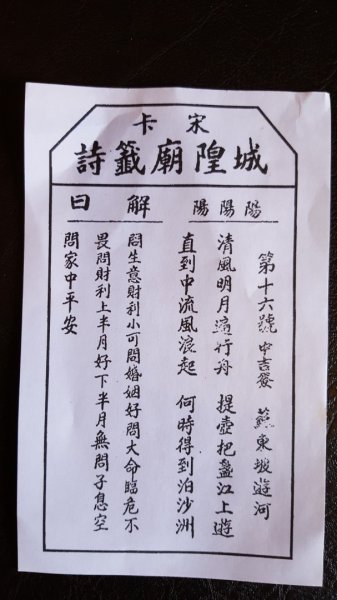 宋卡
城隍廟籤詩
陽陽陽
解曰
第十六號 中吉簽 蘇東坡遊河
清風明月適行舟 提壺把盞江上遊
直到中流風浪起 何時得到泊沙洲
問生意財利小可問婚姻好問大命臨危不
畏問財利上半月好下半月無問子息空
問家中平安